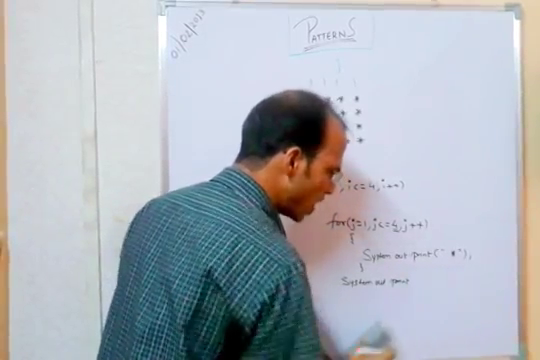 01/02/2023
PATTERNS
* *
*
*
*
, i<=4, i++)
for(j=1, j<=4, j++)
{
System out print(" *");
}
System out print